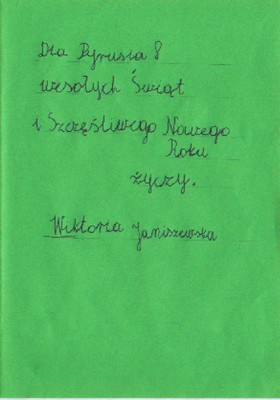 Dla Pyrusia 8
wesołych Świąt
i Szczęśliwego Nowego
Roku
życzy.
Wiktoria Janiszewska